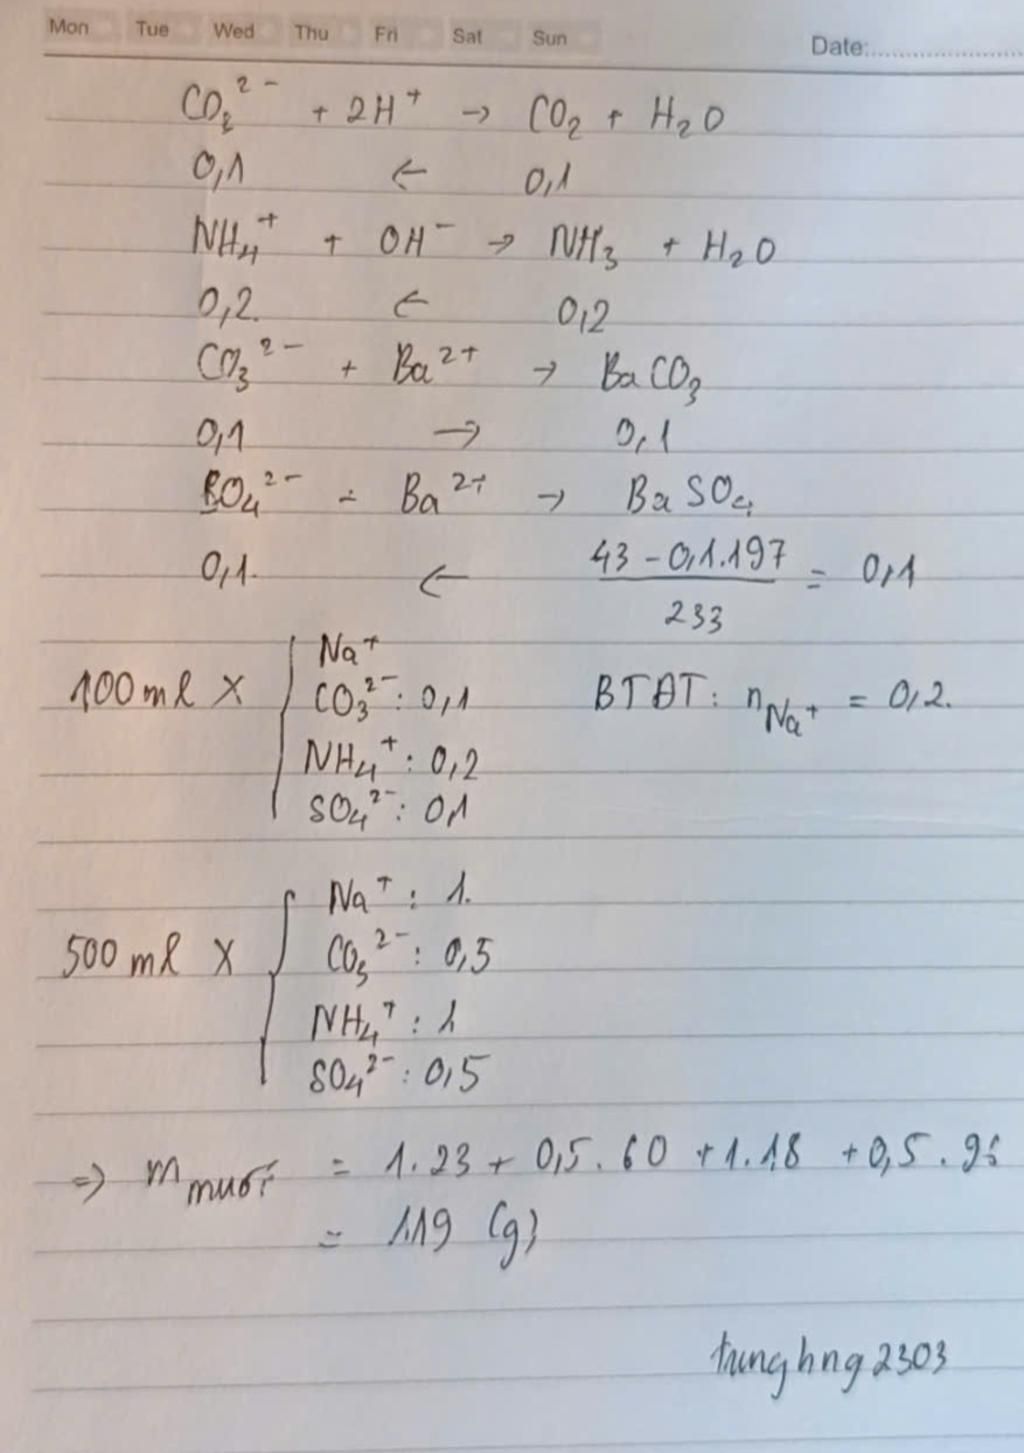 Mon Tue Wed Thu Fri Sat Sun
Date:
CO₂²⁻ + 2H⁺ → CO₂ + H₂O
0,1 ← 0,1
NH₄⁺ + OH⁻ → NH₃ + H₂O
0,2. ← 0,2
CO₃²⁻ + Ba²⁺ → BaCO₃
0,1 → 0,1
SO₄²⁻ + Ba²⁺ → BaSO₄
0,1. ← (43 - 0,1.197)/233 = 0,1
100 ml X { Na⁺
CO₃²⁻: 0,1 BTĐT: nNa⁺ = 0,2.
NH₄⁺: 0,2
SO₄²⁻: 0,1
500 ml X { Na⁺: 1.
CO₃²⁻: 0,5
NH₄⁺: 1
SO₄²⁻: 0,5
=> m muối = 1.23 + 0,5.60 + 1.18 + 0,5.96
= 119 (g)
trunghng2303